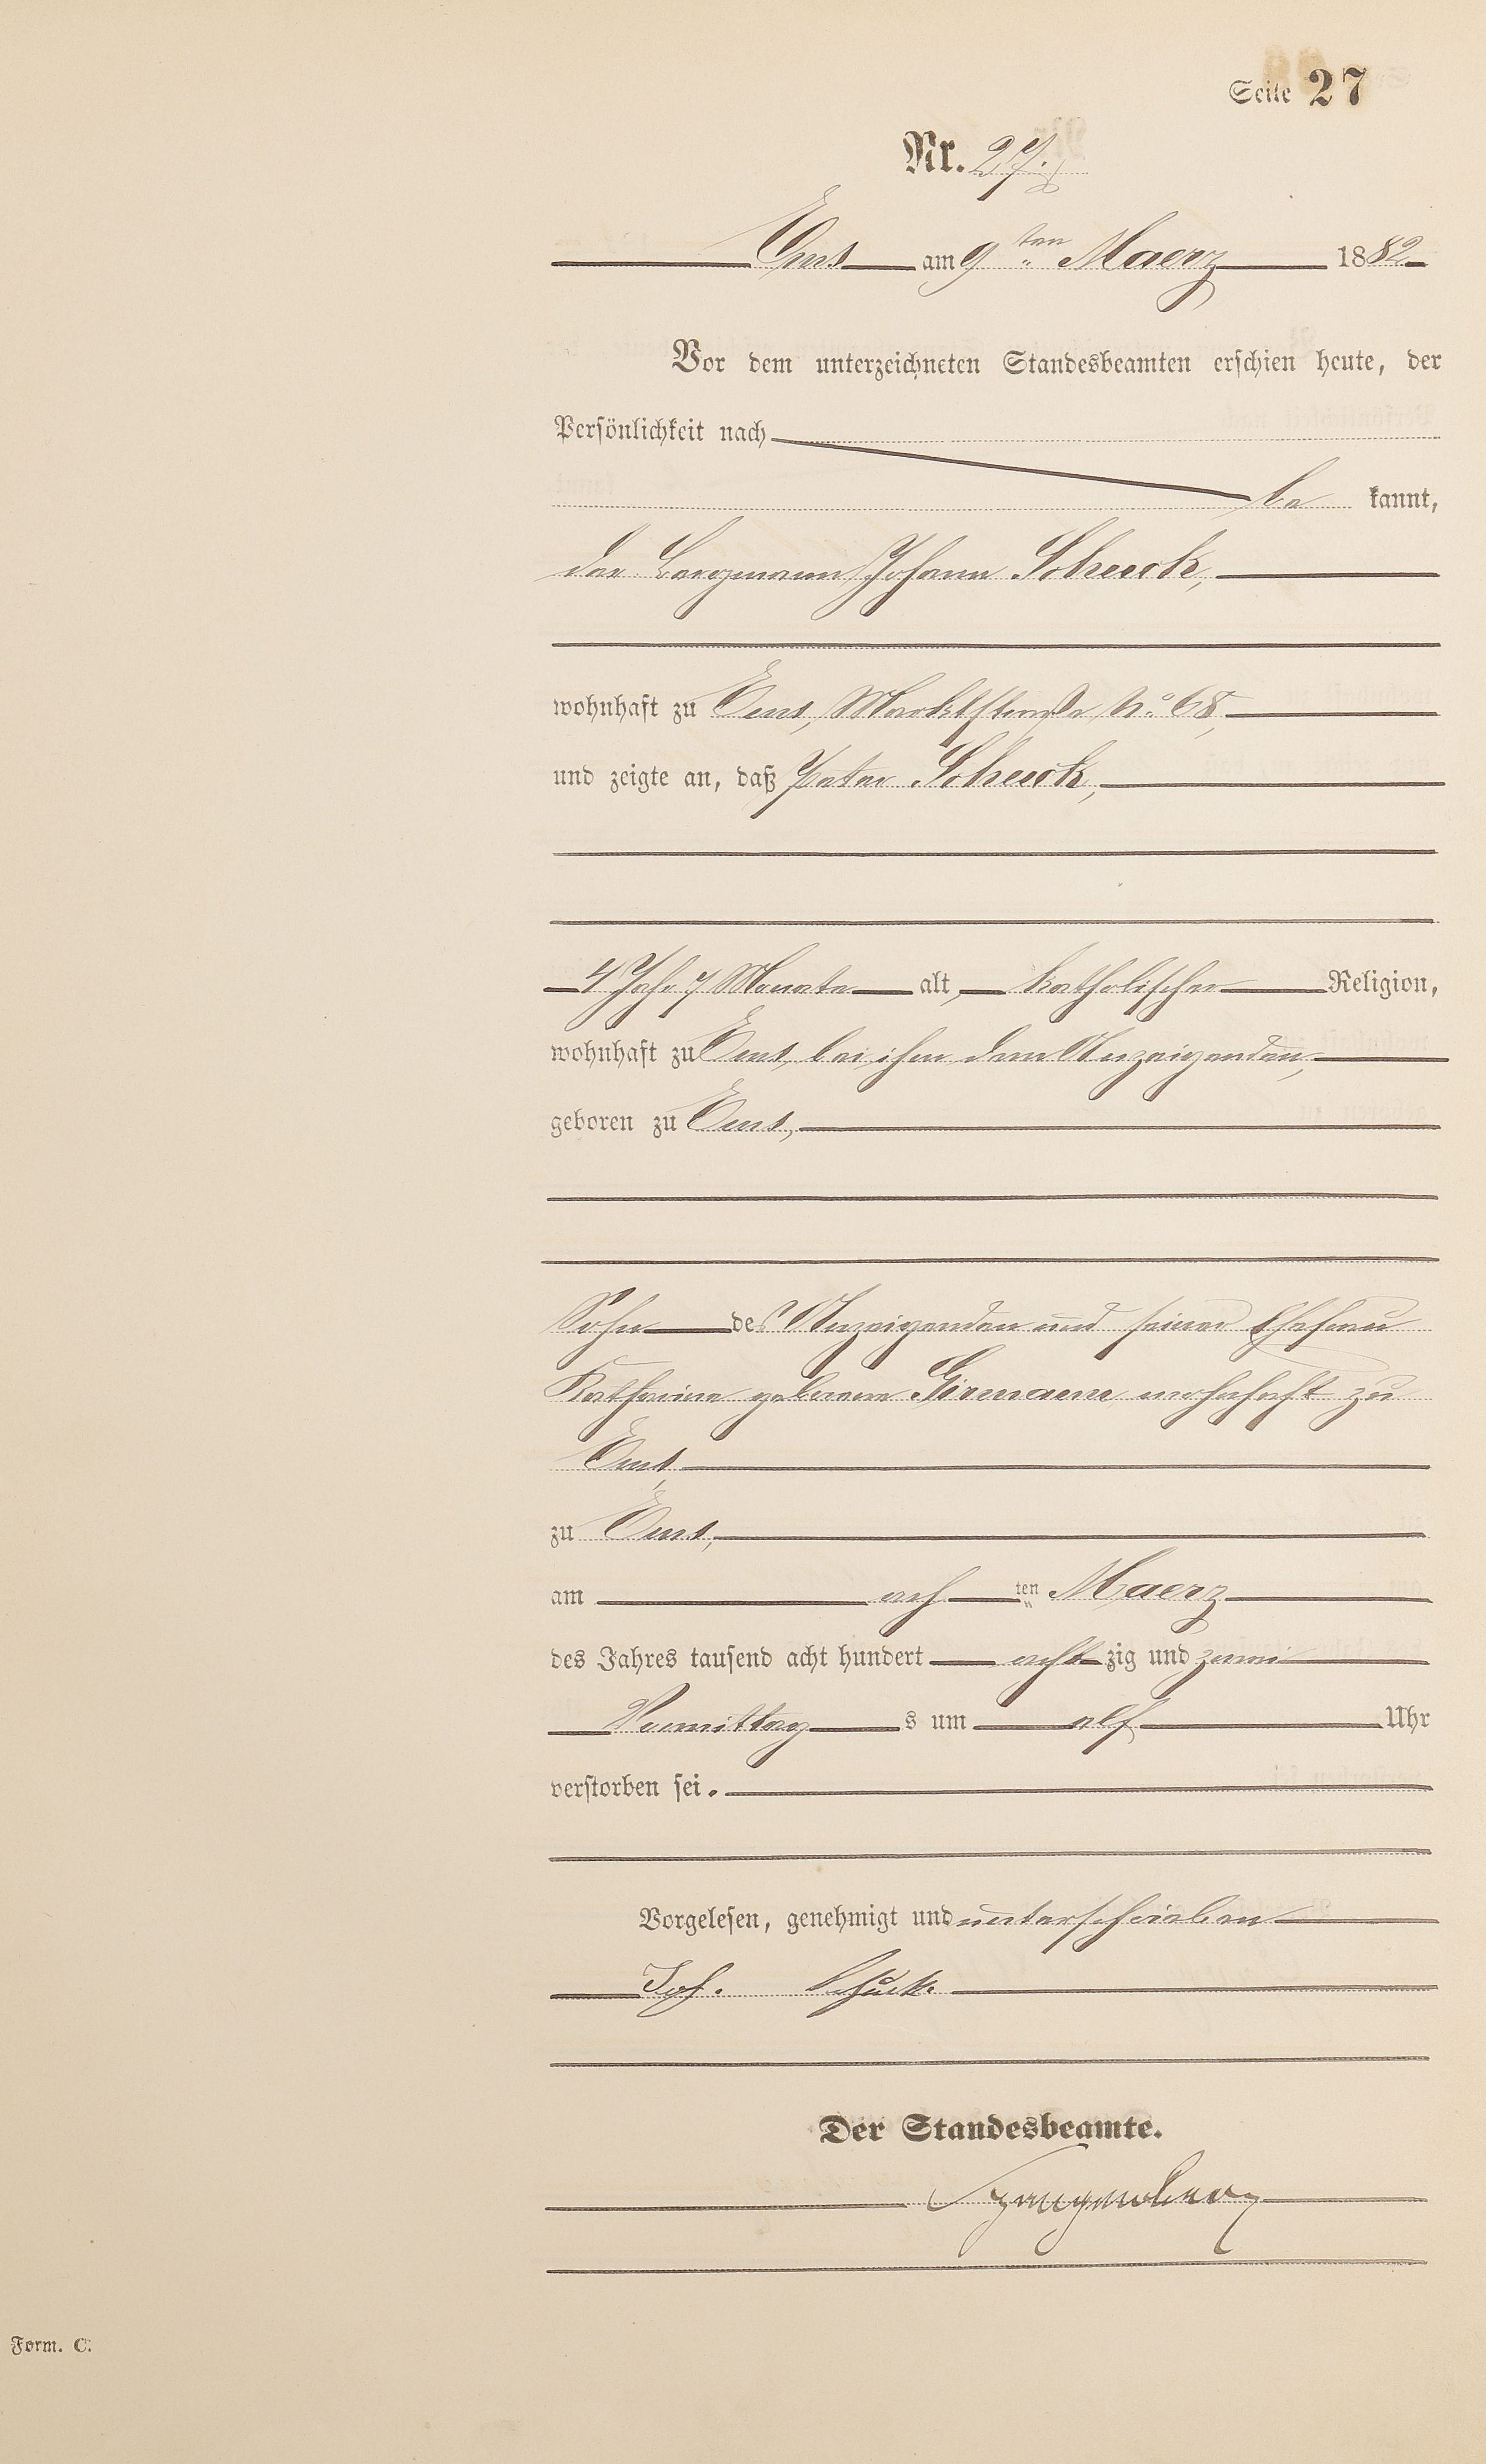 Seite 27
Nr. 27.
Ems am 9ten Maerz 1882
Vor dem unterzeichneten Standesbeamten erschien heute, der
Persönlichkeit nach
be kannt,
der Bergmann Johann Scheuck,
wohnhaft zu Ems, Marktstraße No. 68,
und zeigte an, daß Peter Scheuck,
4 Jahr 7 Monate alt, katholischer Religion,
wohnhaft zu Ems, bei ihm dem Anzeigenden,
geboren zu Ems,
Sohn des Anzeigenden und seiner Ehefrau
Katharina geborene Girmann wohnhaft zu
Ems,
zu Ems,
am ach ten Maerz
des Jahres tausend acht hundert acht zig und zwei
Vormittag s um elf Uhr
verstorben sei.
Vorgelesen, genehmigt und unterschrieben
Joh.
Der Standesbeamte.
Form. C.